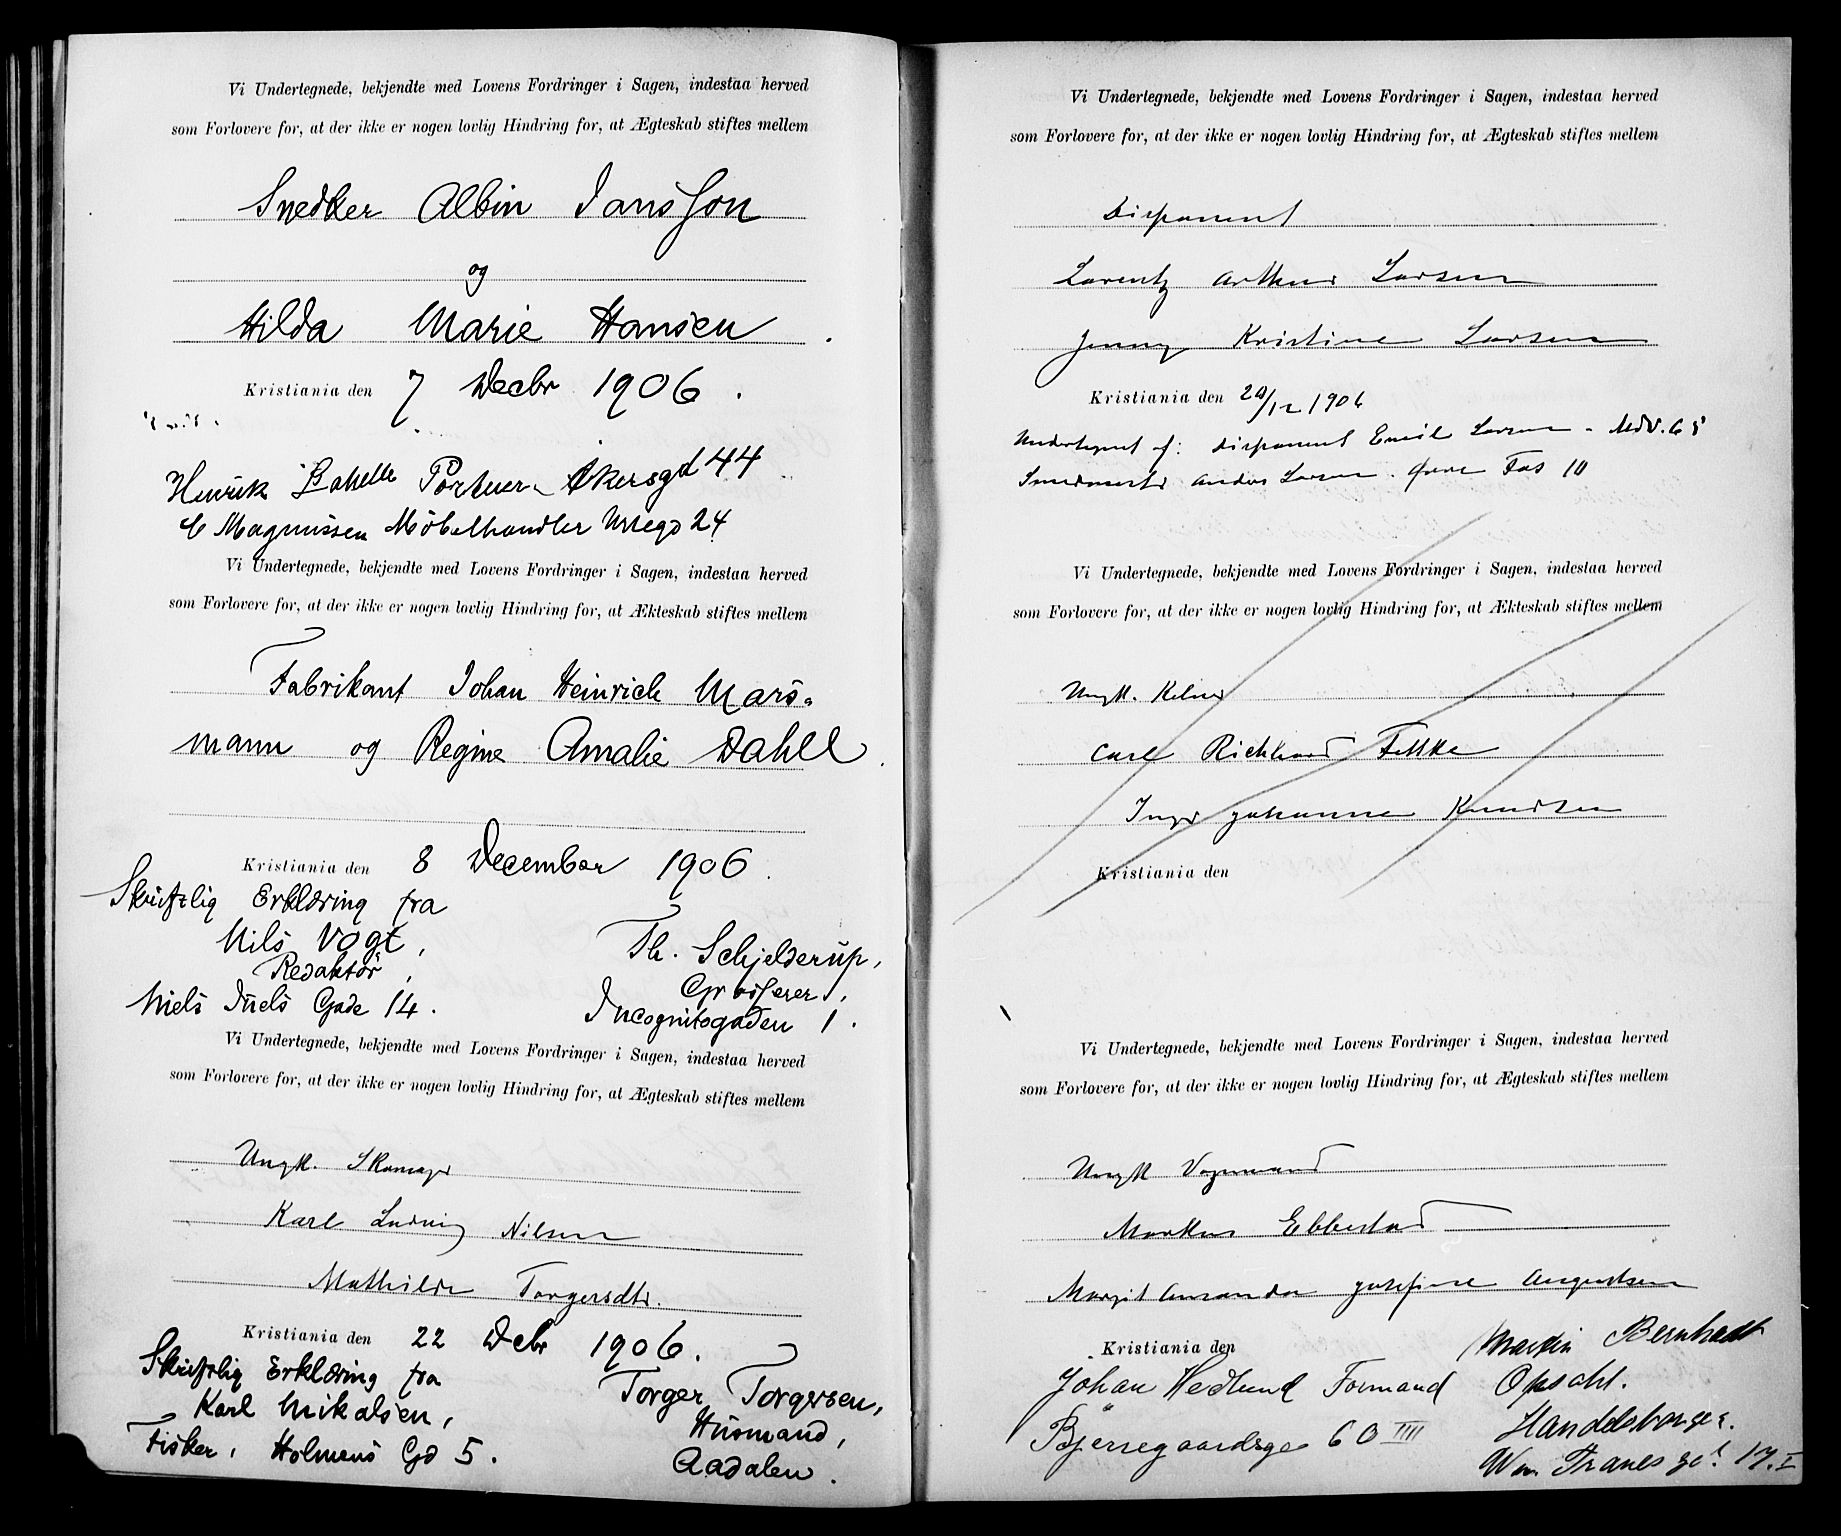 Vi Undertegnede, bekjendte med Lovens Fordringer i Sagen, indestaa herved
som Forlovere for, at der ikke er nogen lovlig Hindring for, at Ægteskab stiftes mellem
Snedker Albin Jansson
og
Hilda Marie Hansen.
Kristiania den 7 Decbr 1906.
Henrik Portner Akersgd 44
C Magnussen Møbelhandler 24
Vi Undertegnede, bekjendte med Lovens Fordringer i Sagen, indestaa herved
som Forlovere for, at der ikke er nogen lovlig Hindring for, at Ækteskab stiftes mellem
Fabrikant Johan Heinrich Mars-
mann og Regine Amalie Dahll.
Kristiania den 8 December 1906.
Skriftlig Erklæring fra
Nils Vogt, Th. Schjelderup,
Redaktør, Grosserer,
Niels Juels Gade 14. Incognitogaden 1.
Vi Undertegnede, bekjendte med Lovens Fordringer i Sagen, indestaa herved
som Forlovere for, at der ikke er nogen lovlig Hindring for, at Ægteskab stiftes mellem
Ungk. Skomager
Karl Ludvig Nilsen
Mathilde Torgersdtr.
Kristiania den 22 Debr 1906.
Skriftlig Erklæring fra
Karl Mikalsen, Torger Torgersen,
Fisker, Holmens Gd 5. Husmand,
Aadalen.
Vi Undertegnede, bekjendte med Lovens Fordringer i Sagen, indestaa herved
som Forlovere for, at der ikke er nogen lovlig Hindring for, at Ægteskab stiftes mellem
Disponent
Lorentz Arthur Larsen
Jenny Kristine Larsen
Kristiania den 20/12 1906
Undertegnet af: Disponent Emil Larsen
Anders Larsen Fos 10
Vi Undertegnede, bekjendte med Lovens Fordringer i Sagen, indestaa herved
som Forlovere for, at der ikke er nogen lovlig Hindring for, at Ækteskab stiftes mellem
Ungk. Kelner
Carl Richhard
Johanne Knudsen
Kristiania den
Vi Undertegnede, bekjendte med Lovens Fordringer i Sagen, indestaa herved
som Forlovere for, at der ikke er nogen lovlig Hindring for, at Ægteskab stiftes mellem
Ungk Vognmand
Markus Ebbestad
Margit Amanda Josefine Augustsen
Kristiania den Martin Bernhardt
Johan Hedlund Formand Opsahl.
Bjerregaardsga 60 IIII Handelsborger.
Wm. Tranes gt. 17. I